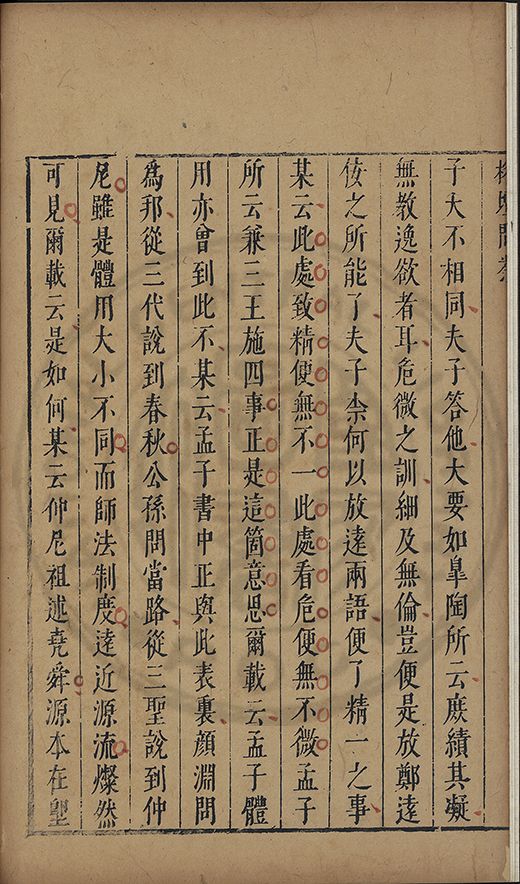 榕壇問業
子大不相同夫子答他大要如皐陶所云庶績其凝
無教逸欲者耳危微之訓細及無倫豈便是放鄭遠
佞之所能了夫子柰何以放遠兩語便了精一之事
某云此處致精便無不一此處看危便無不微孟子
所云兼三王施四事正是這箇意思爾載云孟子體
用亦曾到此不某云孟子書中正與此表裏顏淵問
爲邦從三代說到春秋公孫問當路從三聖說到仲
尼雖是體用大小不同而師法制度遠近源流燦然
可見爾載云是如何某云仲尼祖述堯舜源本在聖